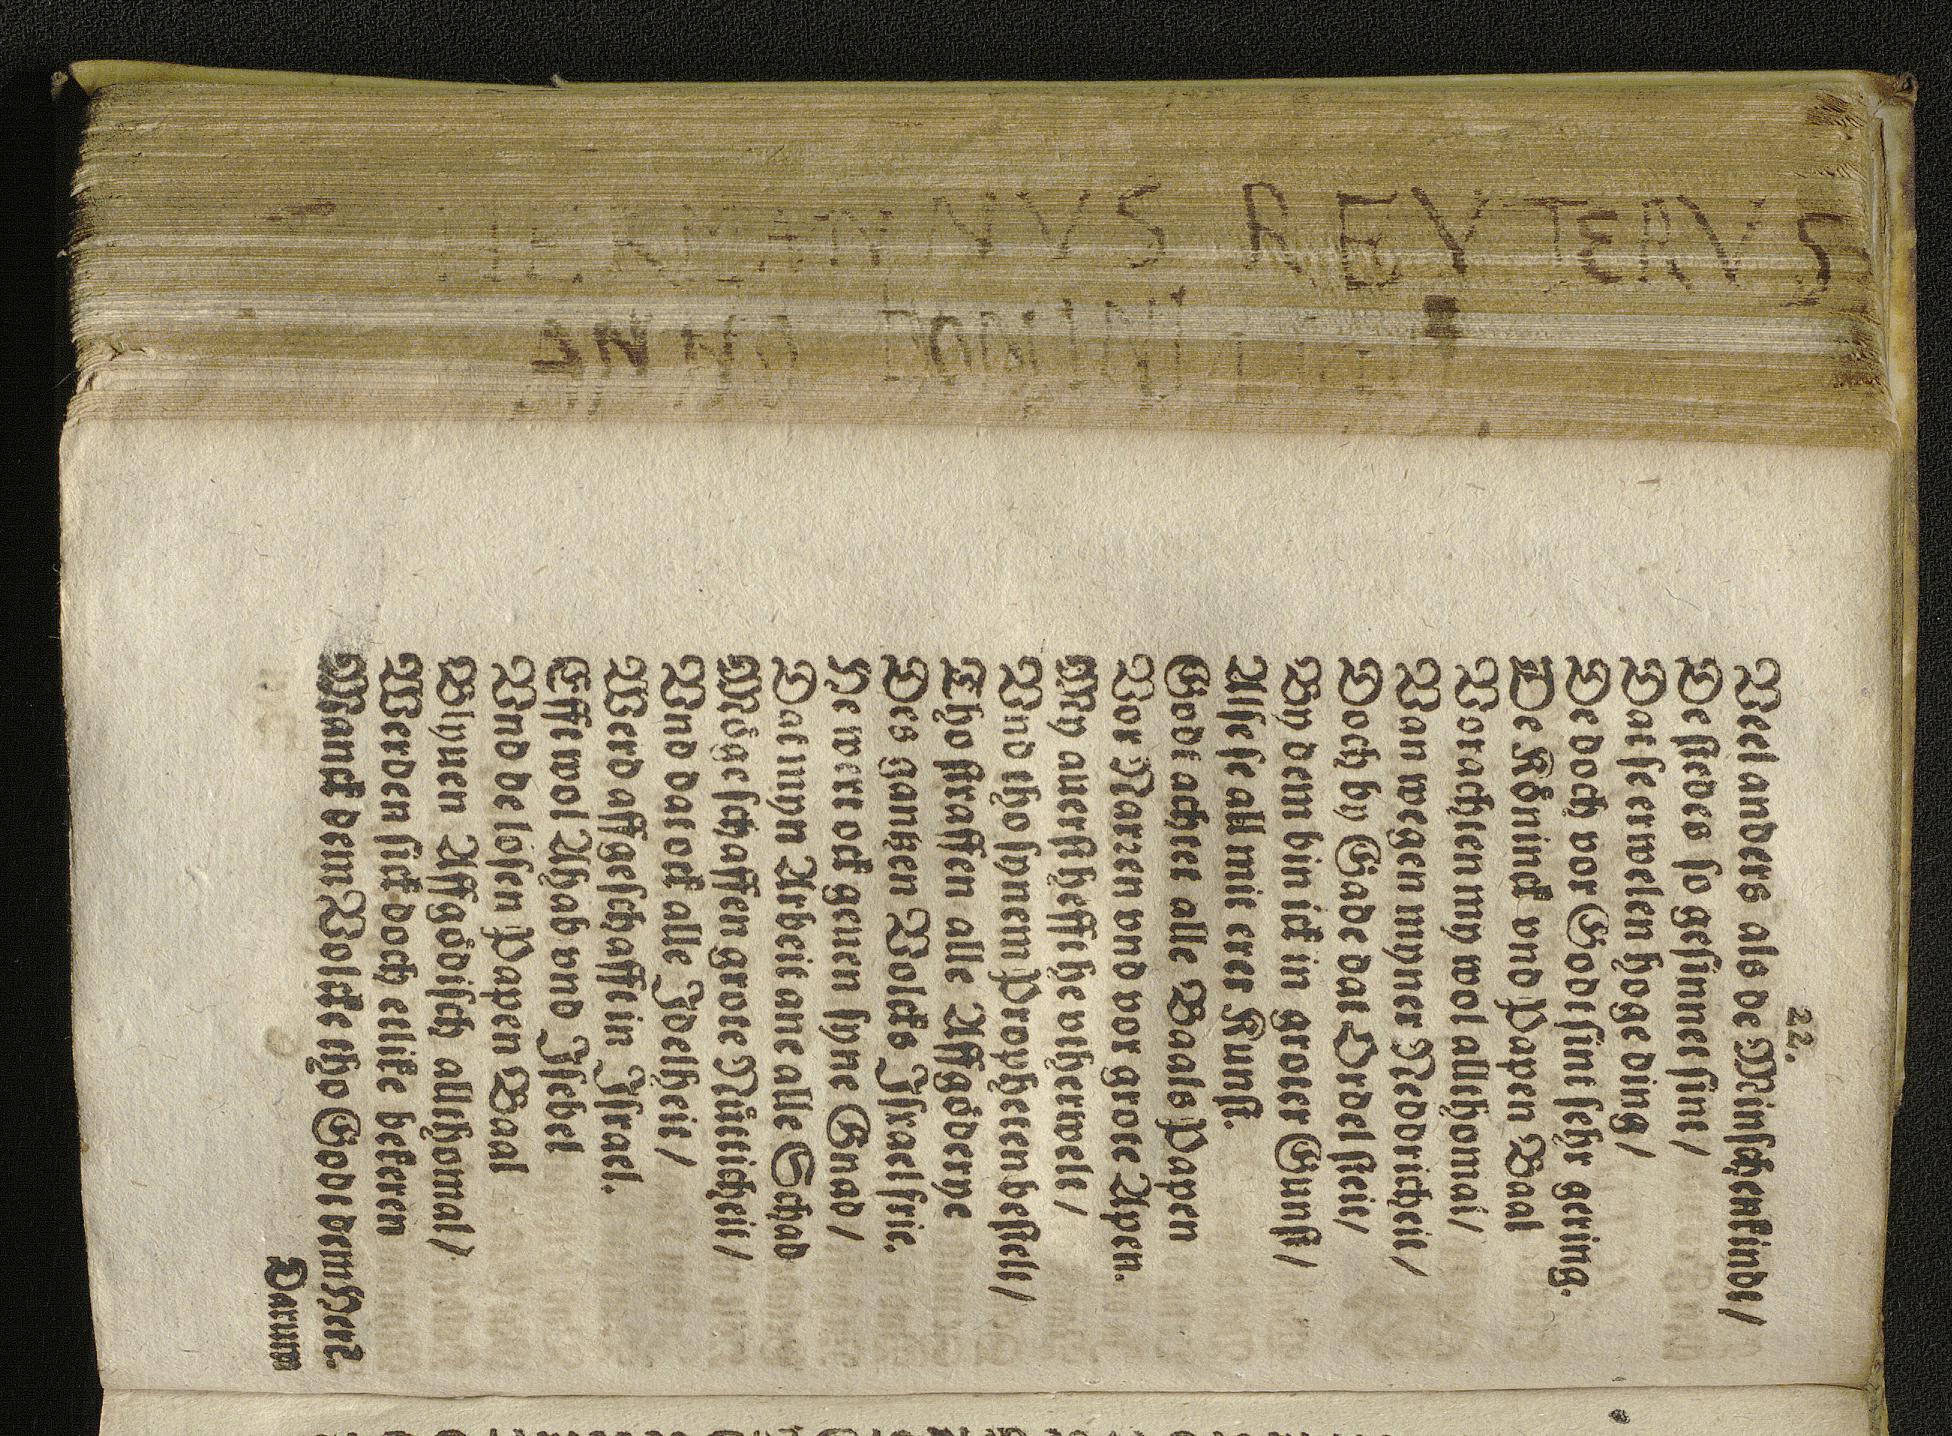 HERMANNVS REYTERVS
ANNO DOMINI
22.
Veel anders als de Minschenkindt/
De stedes so gesinnet sint/
Dat se erwelen hoge ding/
De doch vor Godt sint sehr gering.
De Köninck vnd Papen Baal
Vorachten my wol allthomal/
Van wegen myner Neddricheit/
Doch by Gade dat Ordel steit/
By dem bin ick in groter Gunst/
Alse se all mit erer Kunst.
Godt achtet alle Baals Papen
Vor Narren vnd vor grote Apen.
My auerst hefft he vtherwelt/
Vnd tho synem Propheten bestelt/
Tho straffen alle Affgöderye
Des gantzen Volcks Israel frie.
He wert ock geuen syne Gnad/
Dat myn Arbeit ane alle Schad
Möge schaffen grote Nütticheit/
Vnd dat ock alle Idelheit/
Werd affgeschafft in Israel.
Efft wol Ahab vnd Isebel
Vnd de losen Papen Baal
Blyuen Affgödisch allthomal/
Werden sick doch etlike bekeren
Manck dem Volcke tho Godt dem HERN.
Darum